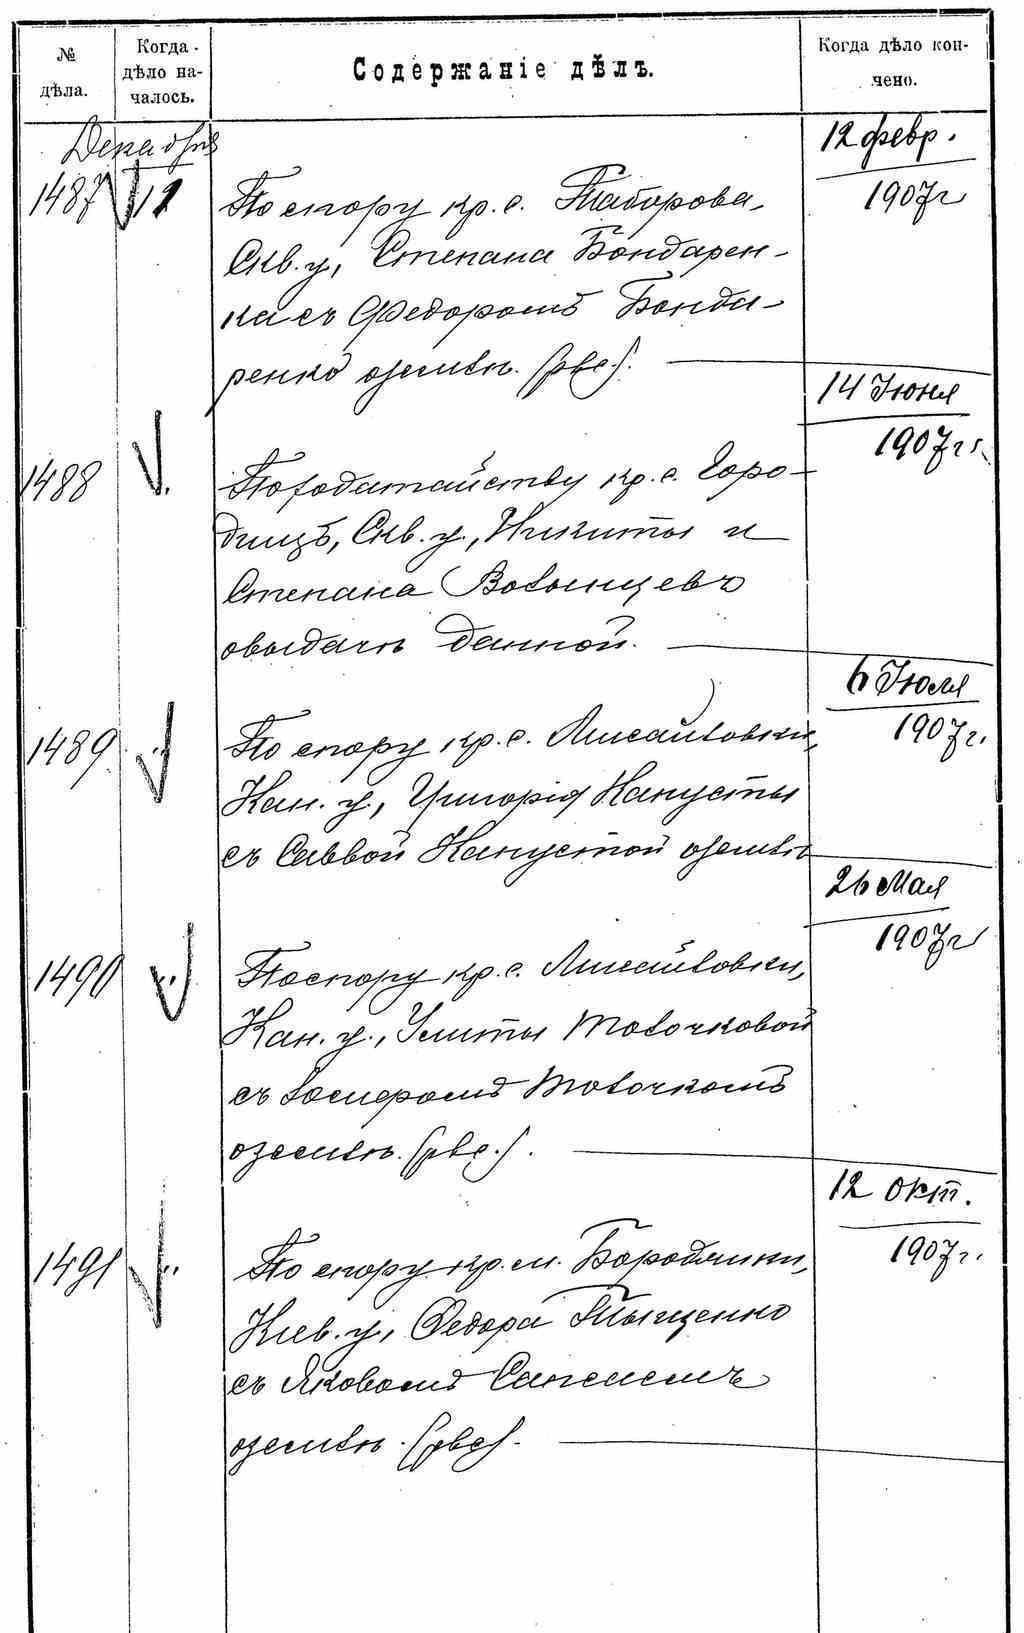 № дѣла.
Когда дѣло началось.
Содержаніе дѣлъ.
Когда дѣло кончено.
Декабря
12 февр.
1907 г
1487 11 По спору кр. с. Таборова,
Скв. у., Степана Бондарен-
ка съ Федоромъ Бонда-
ренко о землѣ. (рвс).
14 Іюня
1907 г.
1488 По ходатайству кр. с. Горо-
дищъ, Скв. у., Никиты и
Степана
о выдачѣ данной.
6 Іюля
1907 г.
1489 По спору кр. с. Лисайловки,
Кан. у., Григорія Капусты
съ Саввой Капустой о землѣ
26 Мая
1907 г
1490 По спору кр. с. Лисайловки,
Кан. у., Улиты Толочковой
съ Толочкомъ
о землѣ. (рвс.).
12 Окт.
1907 г.
1491 По спору кр. м. Бородянки,
Кіев. у., Федора Тыщенко
съ Яковомъ
о землѣ. (рвс).